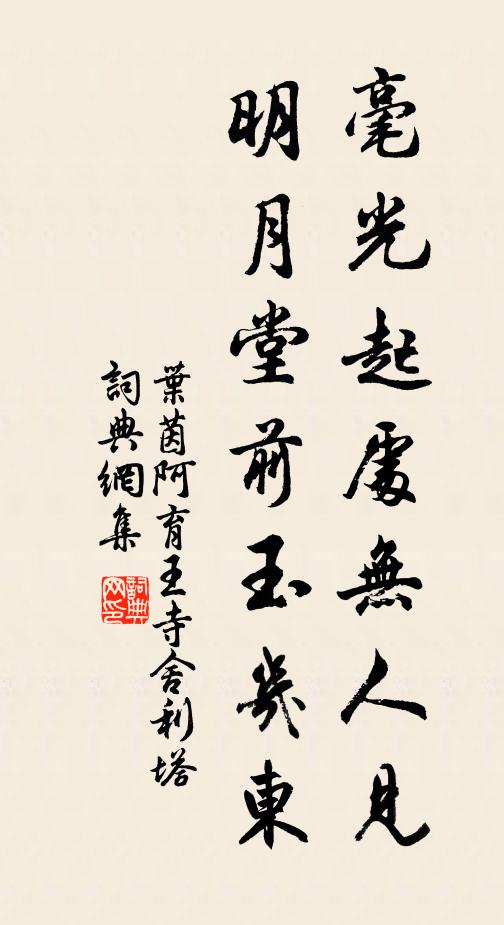 毫光起處無人見
明月堂前玉幾東
葉茵阿育王寺舍利塔
詞典網集
詞典網印